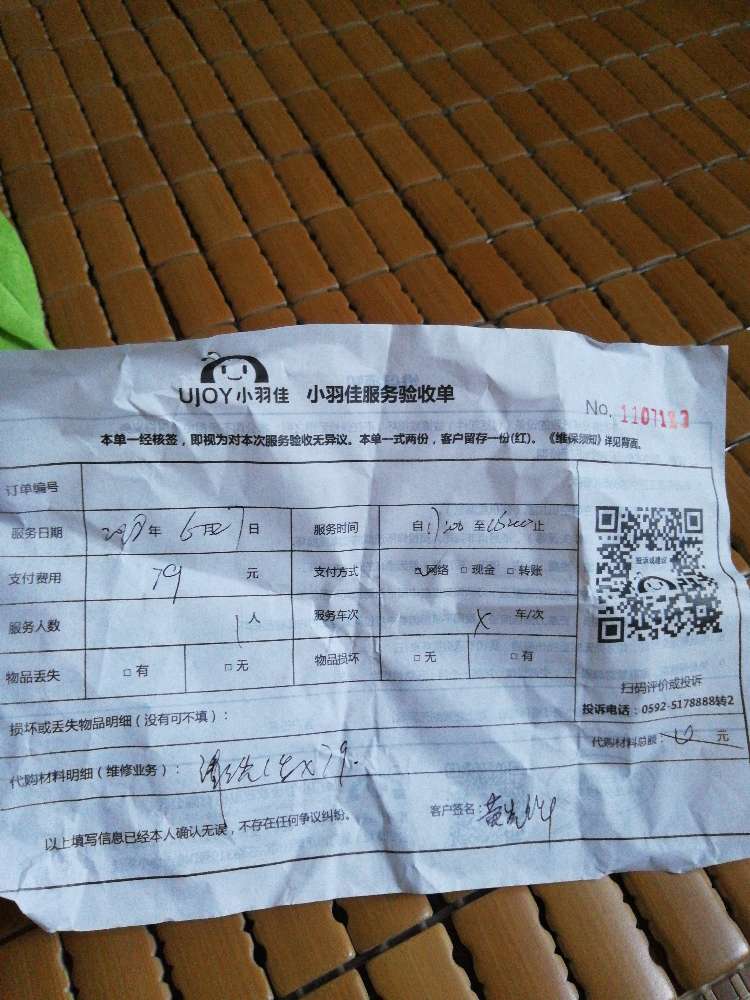 UJOY小羽佳 小羽佳服务验收单
No. 1107123
本单一经核签，即视为对本次服务验收无异议。本单一式两份，客户留存一份(红)。《维保须知》详见背面。
订单编号
服务日期 年 6月27日 服务时间 自 至 止
支付费用 79 元 支付方式 □网络 □现金 □转账
服务人数 1人 服务车次 X 车/次
物品丢失 □有 □无 物品损坏 □无 □有
投诉或建议
扫码评价或投诉
投诉电话：0592-5178888转2
损坏或丢失物品明细（没有可不填）：
代购材料总额： 元
代购材料明细（维修业务）：
以上填写信息已经本人确认无误，不存在任何争议纠纷。 客户签名：